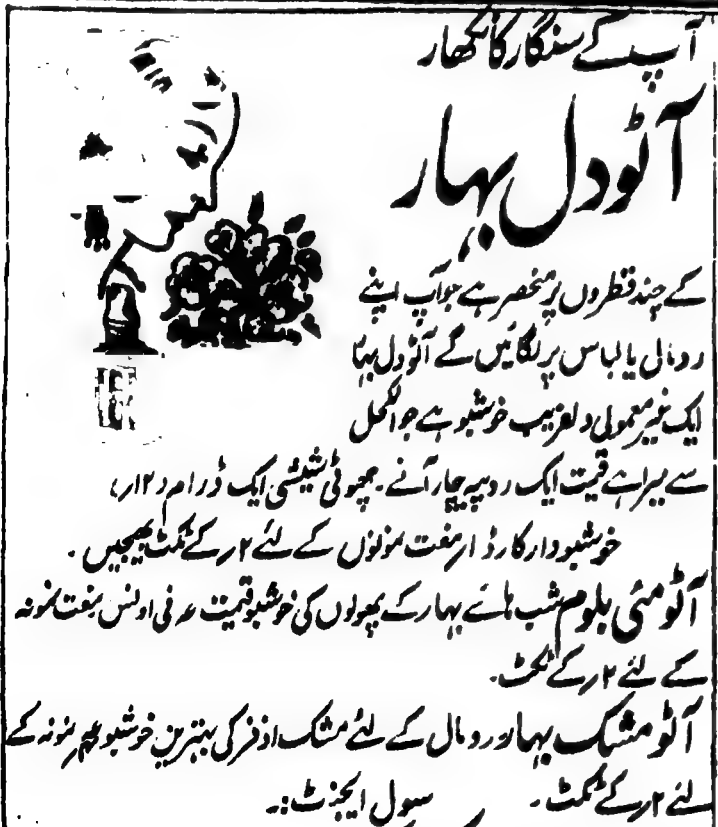 آپ کے سنگار کا نکھار
آٹو دل بہار
کے چند قطروں پر منحصر ہے جو آپ اپنے
رومال یا لباس پر لگائیں گے آٹو دل بہار
ایک غیر معمولی دلفریب خوشبو ہے جو الکحل
سے مبرا ہے قیمت ایک روپیہ چار آنے۔ چھوٹی شیشی ایک ڈرام (۲ار)
خوشبودار کارڈ اور مفت نمونوں کے لئے ۲ر کے ٹکٹ بھیجیں۔
آٹو مئی بلوم شب ہائے بہار کے پھولوں کی خوشبو قیمت عہ فی اونس مفت نمونہ
کے لئے ۲ر کے ٹکٹ۔
آٹو مشک بہار رومال کے لئے مشک اذفر کی بہترین خوشبو نمونہ کے
لئے ۲ر کے ٹکٹ۔ سول ایجنٹ:۔